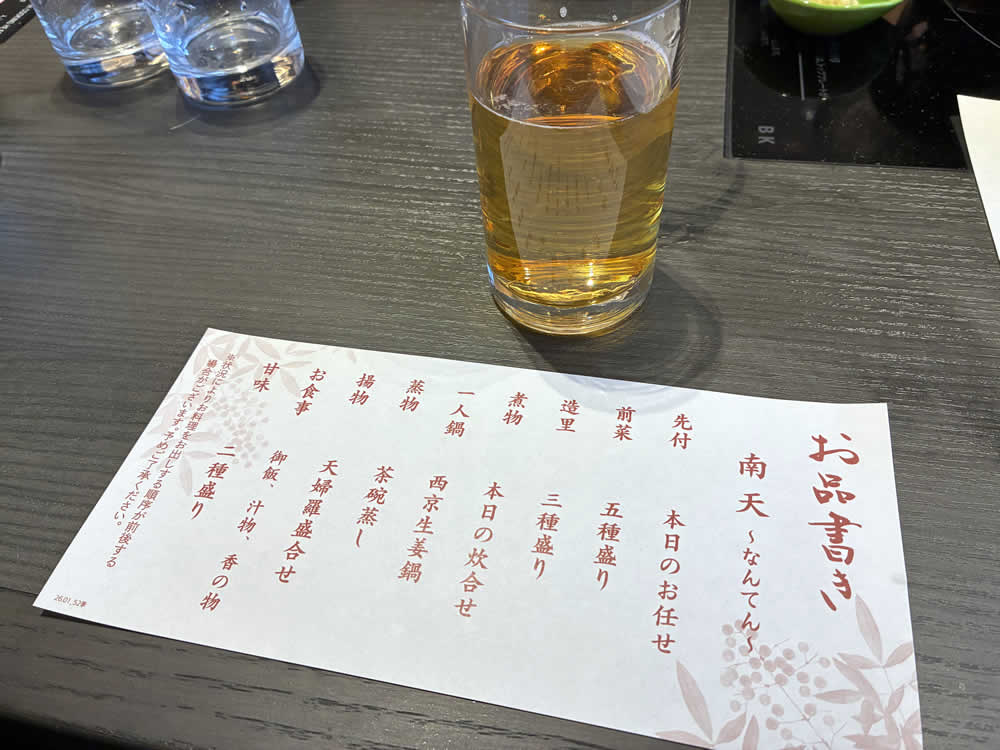 お品書き
南天 ～なんてん～
先付 本日のお任せ
前菜 五種盛り
造里 三種盛り
煮物 本日の炊合せ
一人鍋 西京生姜鍋
蒸物 茶碗蒸し
揚物 天婦羅盛合せ
お食事 御飯、汁物、香の物
甘味 二種盛り
※状況によりお料理をお出しする順序が前後する
場合がございます。予めご了承ください。
BK